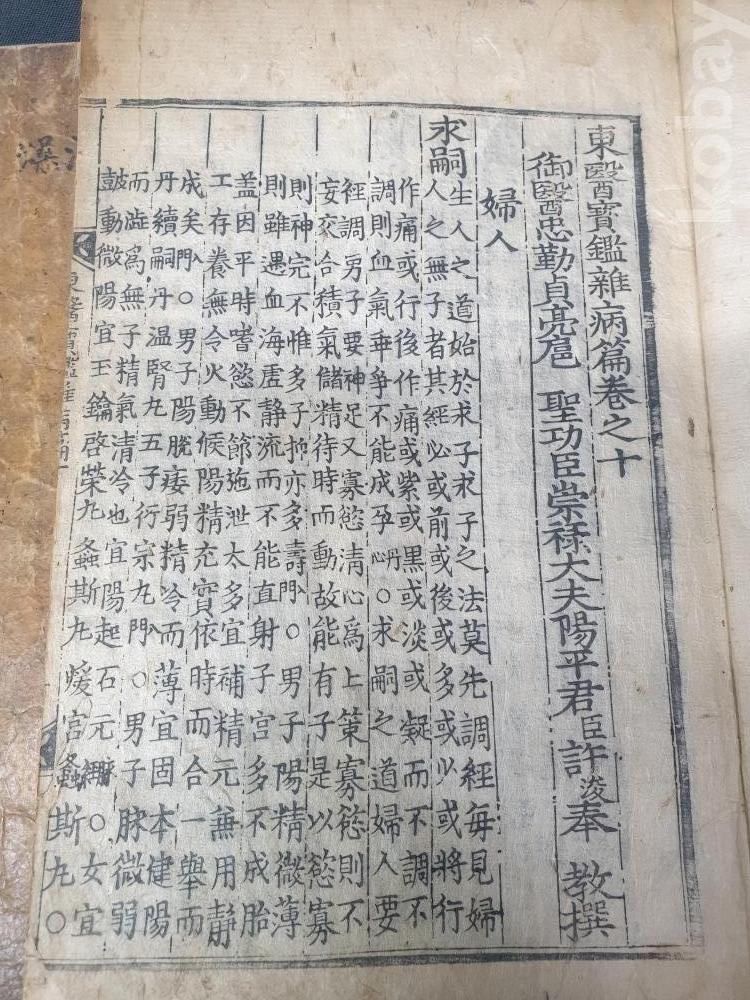 東醫寶鑑雜病篇卷之十
御醫忠勤貞亮扈 聖功臣崇祿大夫陽平君臣許浚奉 教撰
婦人
求嗣
生人之道始於求子求子之法莫先調經每見婦
人之無子者其經必或前或後或多或少或將行
作痛或行後作痛或紫或黑或淡或凝而不調不
調則血氣乖爭不能成孕丹心○求嗣之道婦人要
經調男子要神足又寡慾清心爲上策寡慾則不
妄交合積氣儲精待時而動故能有子是以慾寡
則神完不惟多子抑亦多壽入門○男子陽精微薄
則雖遇血海虛靜流而不能直射子宮多不成胎
盖因平時嗜慾不節施泄太多宜補精元兼用靜
工存養無令火動候陽精充實依時而合一擧而
成矣入門○男子陽脫痿弱精冷而薄宜固本健陽
丹續嗣丹溫腎丸五子衍宗丸入門○男子脉微弱
而澁爲無子精氣清冷也宜陽起石元脉經○女宜
鼓動微陽宜玉鑰啓榮丸螽斯丸煖宮螽斯丸○
東醫寶鑑雜病篇
kobay